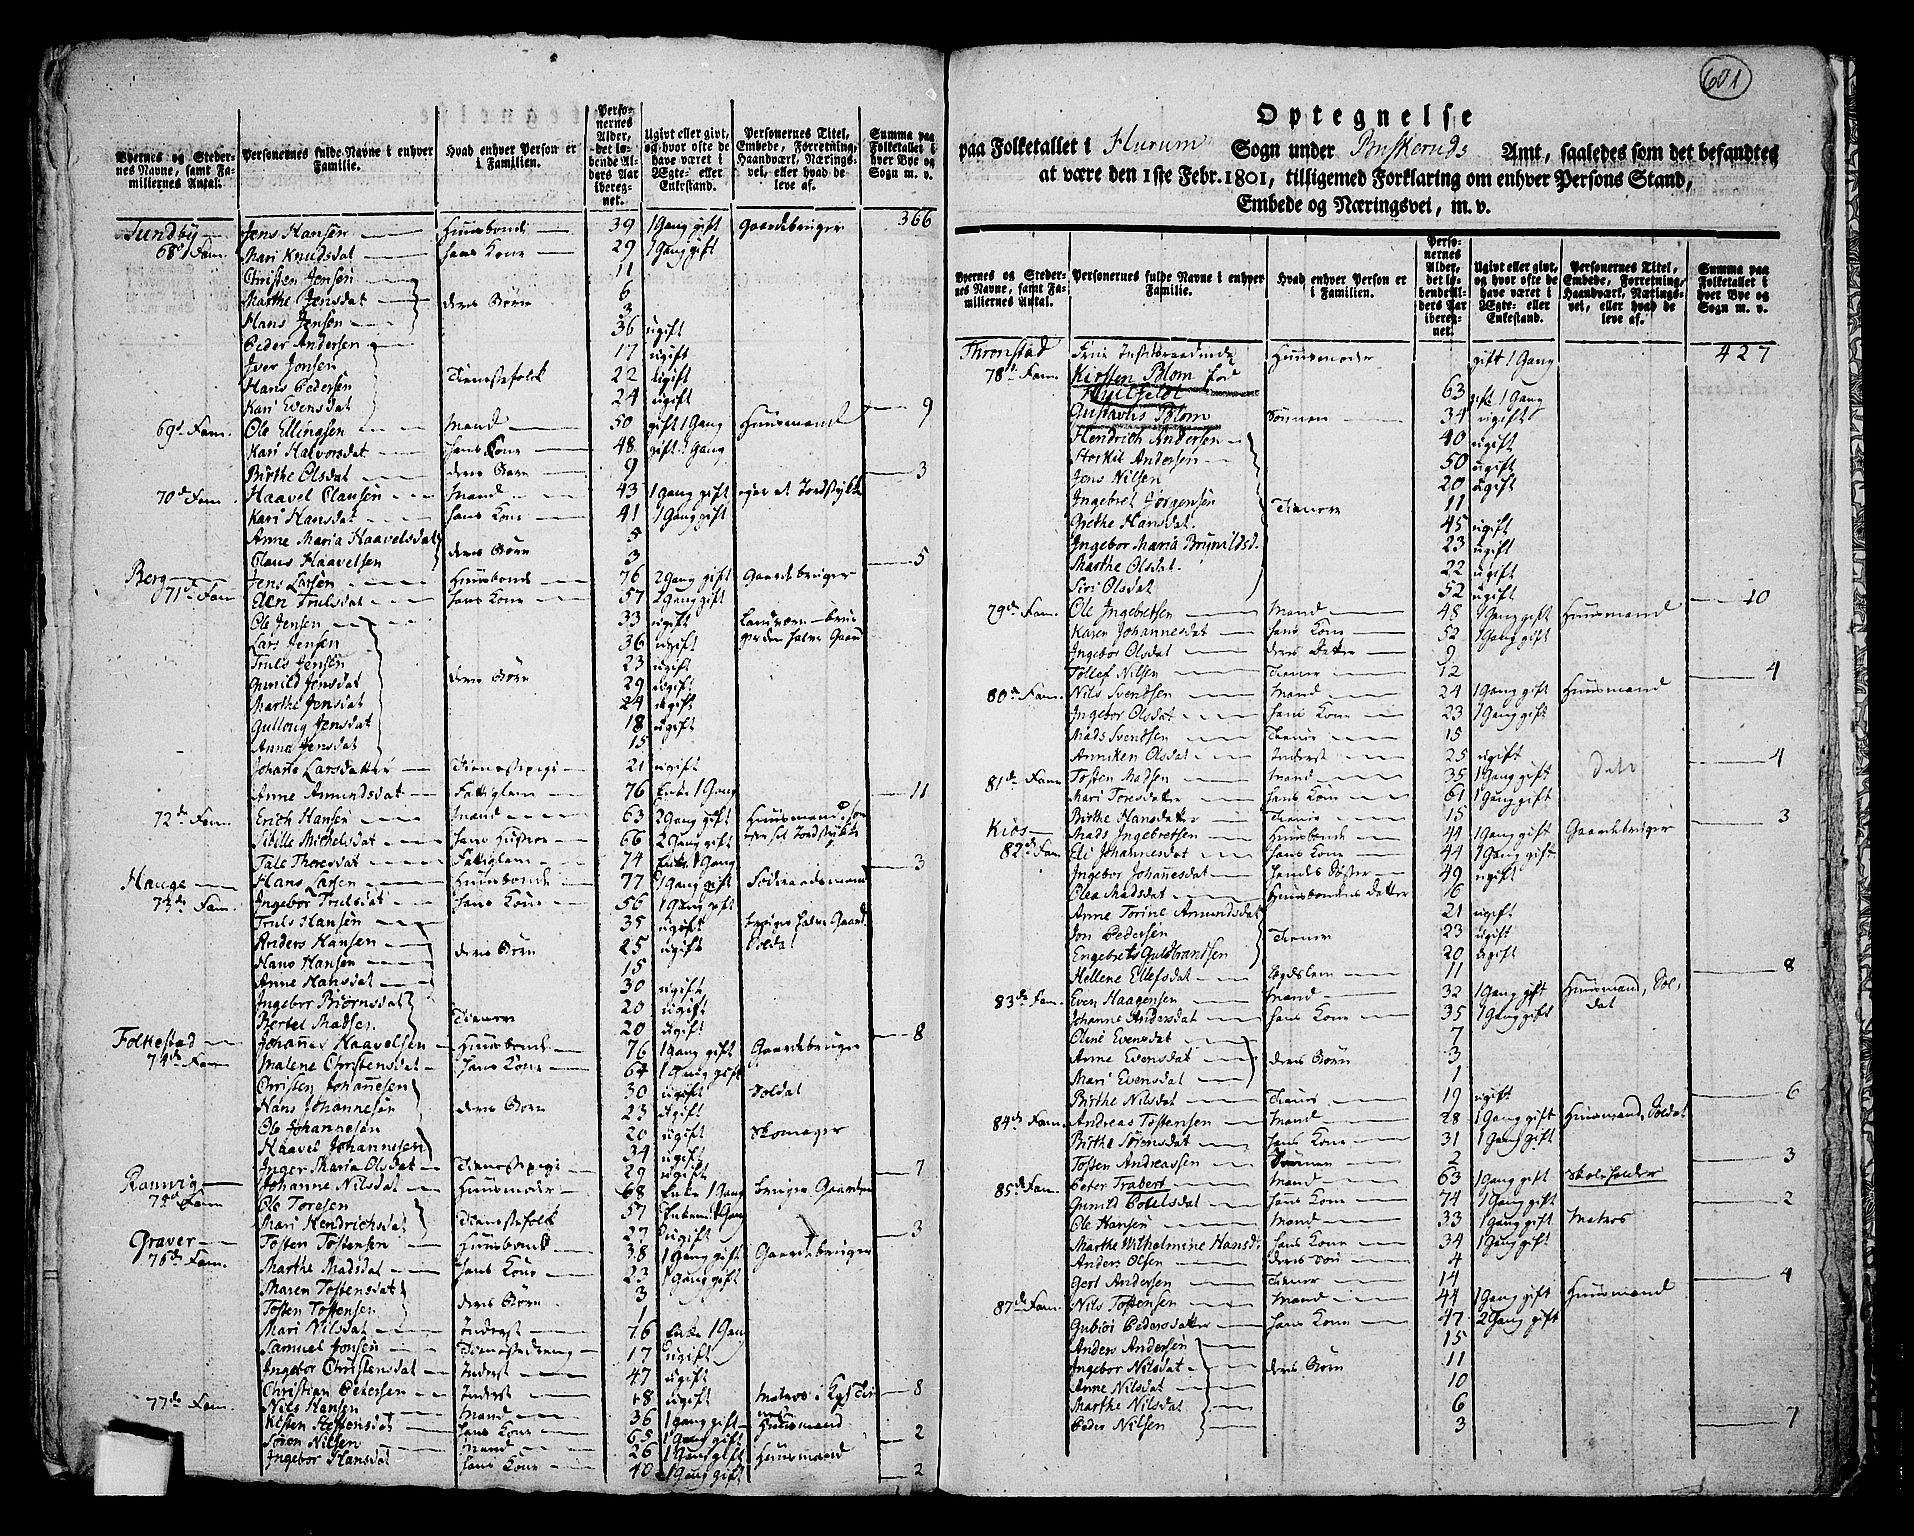 Byernes og Steder-
nes Navne, samt Fa-
miliernes Antal.
Personernes fulde Navne i enhver
Familie.
Hvad enhver Person er
i Familien.
Perso-
nernes
Alder,
det lø-
bende Al-
ders Aar
ibereg-
net.
Ugivt eller givt,
og hvor ofte de
have været i
Ægte- eller
Enkestand.
Personernes Titel,
Embede, Forretning,
Haandværk, Nærings-
vei, eller hvad de
leve af.
Summa paa
Folketallet i
hver Bye og
Sogn m. v.
Sundby Jens Hansen Huusbonde 39 1 Gang gift Gaardebruger 366
68d Fam. Mari Knudsdat hans Kone 29 1 Gang gift
Christen Jensen 11
Marthe Jensdat deres Børn 6
Hans Jensen 3
Peder Andersen 36 ugift
Iver Jonsen 17 ugift
Hans Pedersen Tienestefolk 22 ugift
Kari Evensdat 24 ugift 9
69d Fam. Ole Ellingsen Mand 50 gift 1 Gang Huusmand
Kari Halvorsdat hans Kone 48 gift 1 Gang
Birthe Olsdat deres Barn 9 3
70de Fam. Haavel Clausen Mand 43 1 Gang gift eger et Jordstykke
Kari Hansdat hans Kone 41 1 Gang gift
Anne Maria Haavelsdat deres Børn 5
Claus Haavelsen 3 5
Berg Jens Larsen Huusbonde 76 2 Gang gift Gaardebruger
71de Fam Elen Trulsdat hans Kone 57 1 Gang gift
Ole Jensen 33 ugift Landværn bru-
Lars Jensen 36 ugift ger den halve Gaard
Truls Jensen 23 ugift
Gunild Jensdat deres Børn 29 ugift
Marthe Jensdat 24 ugift
Gulloug Jensdat 18 ugift
Anna Jensdat 15
Johanne Larsdatter Tienestepige 21 ugift
Anne Amundsdat Fattiglem 76 Enke 1 Gang 11
72de Fam. Erich Hansen Mand 63 2 Gang gift Huusmand
Sibille Michelsdat hans Hustrue 66 2 Gang gift Jordstykke
Tale Thoresdat Fattiglem 74 Enke 1 Gang 3
Hauge Hans Larsen Huusbonde 77 1 Gang gift
73de Fam. Ingebor Trulsdat hans Kone 56 1 Gang gift
Truls Hansen 35 ugift bruger halve Gaard
Anders Hansen deres Børn 25 ugift Soldat
Hans Hansen 15
Anne Hansdat 30 ugift
Ingebor Biørnsdat 20 ugift
Bertel Madsen Tienere 20 ugift 8
Folkestad Johannes Haavelsen Huusbonde 76 1 Gang gift Gaardebruger
74de Fam Malene Christensdat hans Kone 64 1 Gang gift
Christen Johannesen 30 ugift Soldat
Hans Johannesen deres Børn 23 ugift
Ole Johannesen 20 ugift Skomager
Haavel Johannesen 34 ugift
Inger Maria Olsdat Tienestepige 29 ugift 7
Ramvig Johanne Nilsdat Huusmoder 68 Enke 1 Gang bruger Gaarden
75de Fam Ole Toresen 57 Enkem. 1 Gang
Mari Hendrichsdat Tienestefolk 27 ugift 3
Graver Tosten Tostensen Huusbonde 38 1 Gang gift Gaardebruger
76de Fam. Marthe Madsdat hans Kone 23 1 Gang gift
Maren Tostensdat 3
Tosten Tostensen deres Børn 1
Mari Nilsdat Inderst 76 Enke 1 Gang
Samuel Jonsen Tienestedreng 17 ugift
Ingebor Christensdat Inderst 47 ugift
Christian Pedersen Inderst 18 ugift Matros i 8
77de Fam. Nils Hansen Mand 36 1 Gang gift Huusmand
Kirsten Steffensdat hans Kone 65 1 Gang gift 2
Søren Nilsen Mand 26 1 Gang gift Huusmand
Ingebor Hansdat hans Kone 40 1 Gang gift 2
601
Optegnelse
paa Folketallet i Hurum Sogn under Buskeruds Amt, saaledes som det befandtes
at være den 1ste Febr. 1801, tilligemed Forklaring om enhver Persons Stand,
Embede og Næringsvei, m. v.
Byernes og Steder-
nes Navne, samt Fa-
miliernes Antal.
Personernes fulde Navne i enhver
Familie.
Hvad enhver Person er
i Familien.
Perso-
nernes
Alder,
det lø-
bende Al-
ders Aar
ibereg-
net.
Ugivt eller givt,
og hvor ofte de
have været i
Ægte- eller
Enkestand.
Personernes Titel,
Embede, Forretning,
Haandværk, Nærings-
vei, eller hvad de
leve af.
Summa paa
Folketallet i
hver Bye og
Sogn m. v.
Thronstad Frue Justitsraadinde Huusmoder gift 1 Gang 427
78de Fam. Kirsten Blom fød
Hvitfeldt 63 gift 1 Gang
Gustavus Blom Sønnen 34 ugift
Hendrich Andersen 40 ugift
Storkil Andersen 50 ugift
Jens Nilsen 20 ugift
Ingebret Jørgensen Tienere 11
Grethe Hansdat. 45 ugift
Ingebor Maria Brynildsd. 23 ugift
Marthe Olsdat. 22 ugift
Siri Olsdat 52 ugift 10
79de Fam. Ole Ingebretsen Mand 48 1 Gang gift Huusmand
Karen Johannesdat hans Kone 52 1 Gang gift
Ingebor Olsdat deres Datter 9
Tollef Nilsen Tiener 12 4
80de Fam. Nils Svendsen Mand 24 1 Gang gift Huusmand
Ingebor Olsdat hans Kone 23 1 Gang gift
Mads Svendsen Tiener 15
Anniken Olsdat Inderst 25 ugift 4
81de Fam Tosten Madsen Mand 35 1 Gang gift dito
Mari Toresdatter hans Kone 61 1 Gang gift
Birthe Hansdatter Tiener 15 3
Kios Mads Ingebretsen Huusbonde 44 1 Gang gift Gaardebruger
82de Fam Eli Johannesdat hans Kone 44 1 Gang gift
Ingebor Johannesdat Søster 49 ugift
Olea Madsdat Huusbondens Datter 6
Anne Torine Amundsdat 21 ugift
Jon Pedersen Tienere 23 ugift
Engebret Guldbrandsen 20 ugift
Hellene Ellefsdat Legdslem 11 8
83de Fam. Even Haagensen Mand 32 1 Gang gift Huusmand, Sol-
Johanne Andersdat hans Kone 35 1 Gang gift dat
Oline Evensdat 7
Anne Evensdat deres Børn 3
Mari Evensdat 1
Birthe Nilsdat Tiener 19 ugift 6
84de Fam. Andreas Tostensen Mand 28 1 Gang gift Huusmand, Soldat
Birthe Sørensdat hans Kone 31 1 Gang gift
Tosten Andreassen Sønnen 2 3
85de Fam. Peter Trabert Mand 63 1 Gang gift Skoleholder
Gunild hans Kone 74 1 Gang gift 2
Ole Hansen Mand 33 1 Gang gift Matros
Marthe Wilhelmine Hansd. hans Kone 34 1 Gang gift
Anders Olsen deres Søn 4
Gert Andersen Tiener 14 4
87de Fam. Nils Tostensen Mand 44 1 Gang gift Huusmand
Gubiør Pedersdatter hans Kone 47 2 Gang gift
Anders Andersen 15
Ingebor Nilsdat deres Børn 11
Anne Nilsdat 10
Marthe Nilsdat 6
Peder Nilsen 3 7